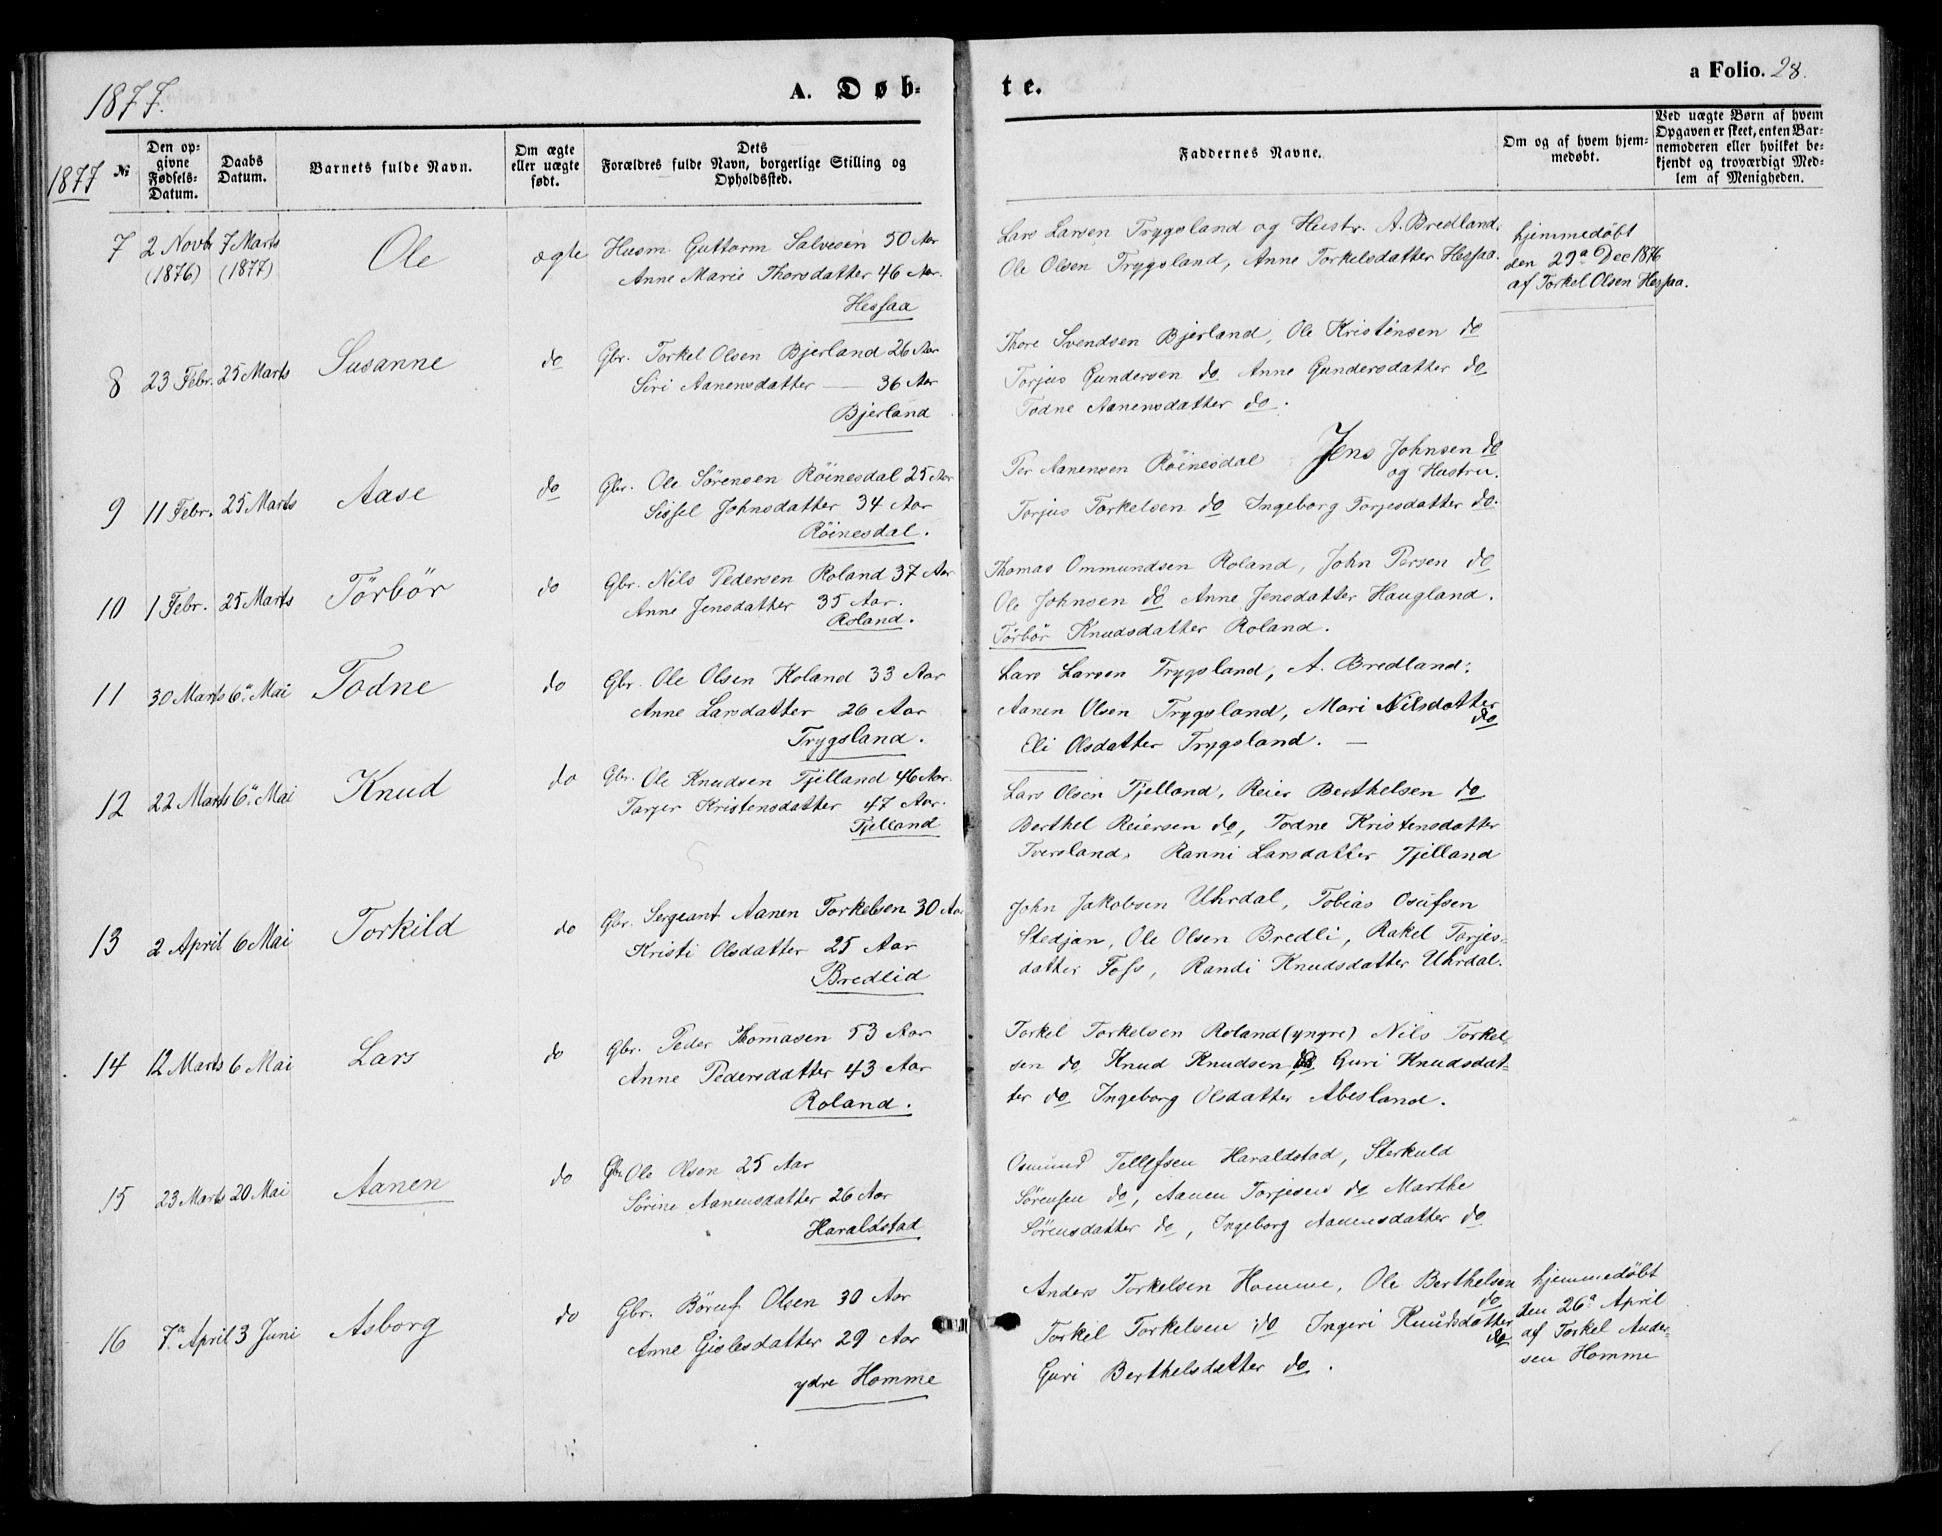 1877.
A. Døb-
te.
a Folio. 28.
1877
№
Den op-
givne
Fødsels-
Datum.
Daabs
Datum.
Barnets fulde Navn.
Om ægte
eller uægte
født.
Dets
Forældres fulde Navn, borgerlige Stilling og
Opholdssted.
Faddernes Navne.
Om og af hvem hjem-
medøbt.
Ved uægte Børn af hvem
Opgaven er skeet, enten Bar-
nemoderen eller hvilket be-
kjendt og troværdigt Med-
lem af Menigheden.
7 2 Novb. 7 Marts Ole ægte Husm. Guttorm Salvesen 50 Aar
(1876) (1877) Anne Marie Thorsdatter 46 Aar.
Hessaa
Lars Larsen Trygsland og Hustr. A. Bredland.
Ole Olsen Trygsland, Anne Torkelsdatter Hessaa.
hjemmedøbt
den 29a Dec 1876
af Torkel Olsen Hessaa.
8 23 Febr. 25 Marts Susanne do Gbr. Torkel Olsen Bjerland 26 Aar
Siri Aanensdatter — 36 Aar
Bjerland
Thore Svendsen Bjerland, Ole Kristensen do
Torjus Gundersen do Anne Gundersdatter do
Todne Aanensdatter do.
9 11 Febr. 25 Marts Aase do Gbr. Ole Sörensen Röinesdal 25 Aar
Sissel Johnsdatter 34 Aar
Röinesdal.
Per Aanensen Röinesdal Jens Johnsen do
og Hustru.
Torjus Torkelsen do Ingeborg Torjesdatter do.
10 1 Febr. 25 Marts Törbör do Gbr. Nils Pedersen Roland 37 Aar
Anne Jensdatter 35 Aar.
Roland.
Thomas Ommundsen Roland, John Persen do
Ole Johnsen do Anne Jensdatter Haugland.
Törbör Knudsdatter Roland.
11 30 Marts 6a Mai Todne do Gbr. Ole Olsen Roland 33 Aar
Anne Larsdatter 26 Aar
Trygsland.
Lars Larsen Trygsland, A. Bredland.
Aanen Olsen Trygsland, Mari Nilsdatter
do
Eli Olsdatter Trygsland. —
12 22 Marts 6a Mai Knud do Gbr. Ole Knudsen Fjelland 46 Aar.
Tarjer Kristensdatter 47 Aar.
Fjelland
Lars Olsen Fjelland, Reier Berthelsen do
Berthel Reiersen do, Todne Kristensdatter
Tversland, Ranni Larsdatter Fjelland
13 2 April 6 Mai Torkild do Gbr. Sergeant Aanen Torkelsen 30 Aar
Kristi Olsdatter 25 Aar
Bredlid
John Jakobsen Uhrdal, Tobias Osufsen
Stedjan, Ole Olsen Bredli, Rakel Torjes-
datter Foss, Randi Knudsdatter Uhrdal.
14 12 Marts 6 Mai Lars do Gbr. Peder Thomasen 53 Aar
Anne Pedersdatter 43 Aar
Roland.
Torkel Torkelsen Roland (yngre) Nils Torkel-
sen do Knud Knudsen do Guri Knudsdat-
ter do Ingeborg Olsdatter Abesland.
15 23 Marts 20 Mai Aanen do Gbr. Ole Olsen 25 Aar
Sörine Aanensdatter 26 Aar
Haraldstad
Osmund Tellefsen Haraldstad, Sterkuld
Sörensen do, Aanen Torjesen do Marthe
Sörensdatter do, Ingeborg Aanensdatter do
16 7a April 3 Juni Asborg do Gbr. Böruf Olsen 30 Aar
Anne Gislesdatter 29 Aar
ydre Homme
Anders Torkelsen Homme, Ole Berthelsen
do
Torkel Torkelsen do Ingeri Knudsdatter
do
Guri Berthelsdatter do.
hjemmedöbt
den 26a April
af Torkel Ander-
sen Homme